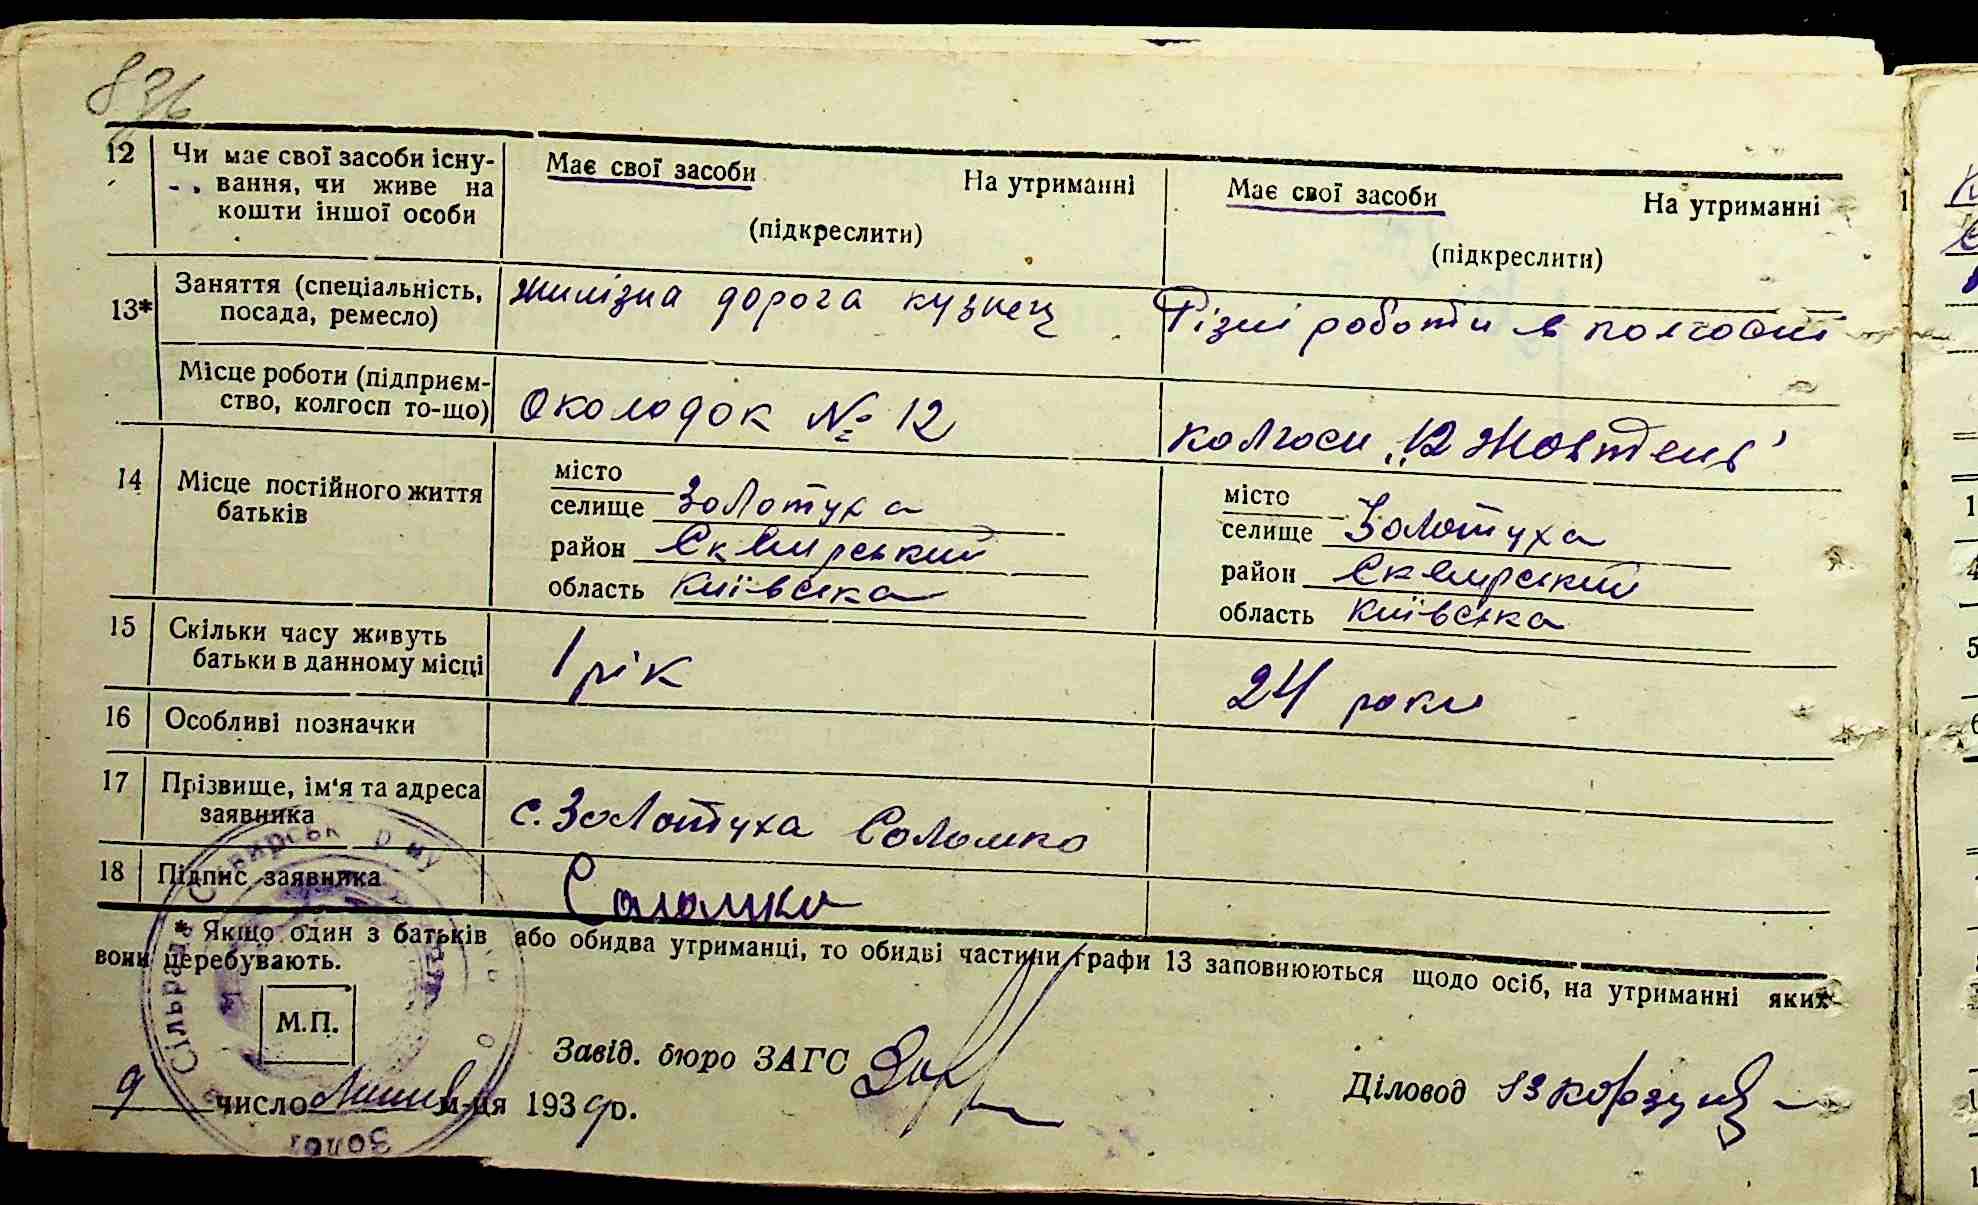 836
12 Чи має свої засоби існу-
вання, чи живе на
кошти іншої особи
Має свої засоби На утриманні
(підкреслити)
Має свої засоби На утриманні
(підкреслити)
13* Заняття (спеціальність,
посада, ремесло)
жилізна дорога кузнец
Різні роботи в
Місце роботи (підприєм-
ство, колгосп то-що)
Околодок № 12
колгосп „12 Жовтень"
14 Місце постійного життя
батьків
місто
селище Золотуха
район Сквирський
область Київська
місто
селище Золотуха
район Сквирський
область Київська
15 Скільки часу живуть
батьки в данному місці
1 рік
24 роки
16 Особливі позначки
17 Прізвище, ім'я та адреса
заявника
с. Золотуха Соломко
18 Підпис заявника
Соломко
* Якщо один з батьків або обидва утриманці, то обидві частини графи 13 заповнюються щодо осіб, на утриманні яких
вони перебувають.
М.П.
Сільрада Сквирськ р-ну
Завід. бюро ЗАГС
Діловод
9 число м-ця 1939 р.